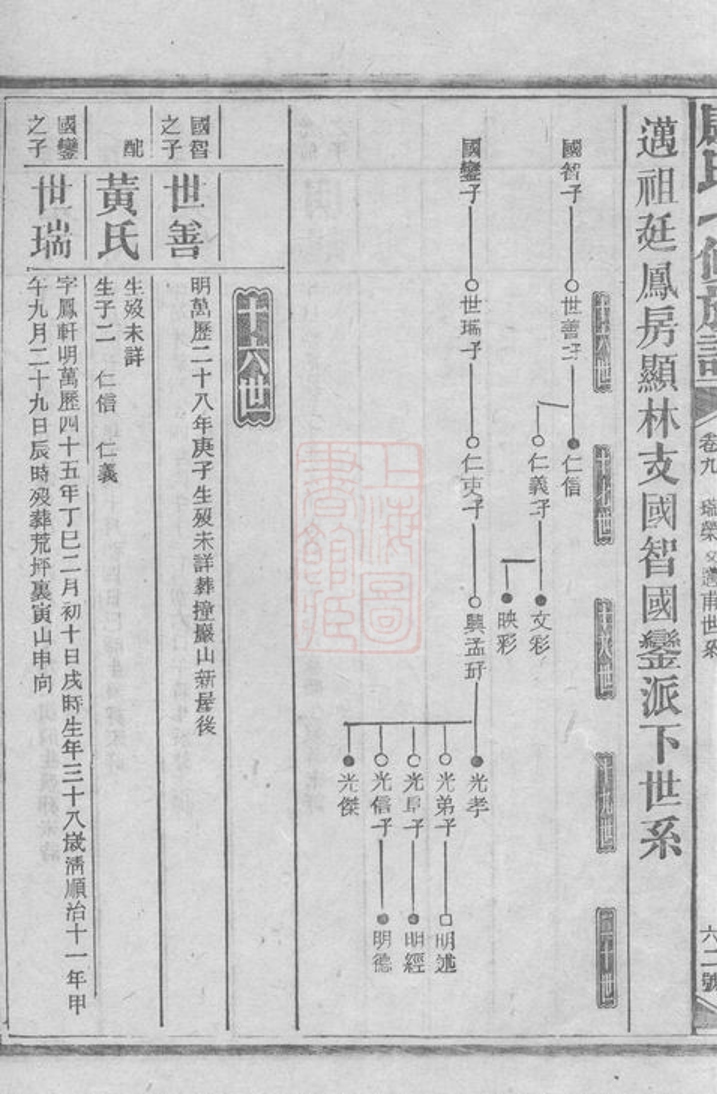 族譜
卷九
瑞榮
甫世系
六二號
邁祖廷鳳房顯林支國智國鑾派下世系
十六世
十七世
十八世
十九世
二十世
國智子
世善子
仁信
仁義子
文彩
映彩
國鑾子
世瑞子
仁吏子
興孟子
光孝
光弟子
明述
光早子
明經
光信子
明德
光傑
上海圖
書館藏
十六世
國智
之子
世善
明萬歷二十八年庚子生歿未詳葬撞巖山新屋後
配
黃氏
生歿未詳
生子二 仁信 仁義
國鑾
之子
世瑞
字鳳軒明萬歷四十五年丁巳二月初十日戌時生年三十八歲淸順治十一年甲
午九月二十九日辰時歿葬荒坪裏寅山申向